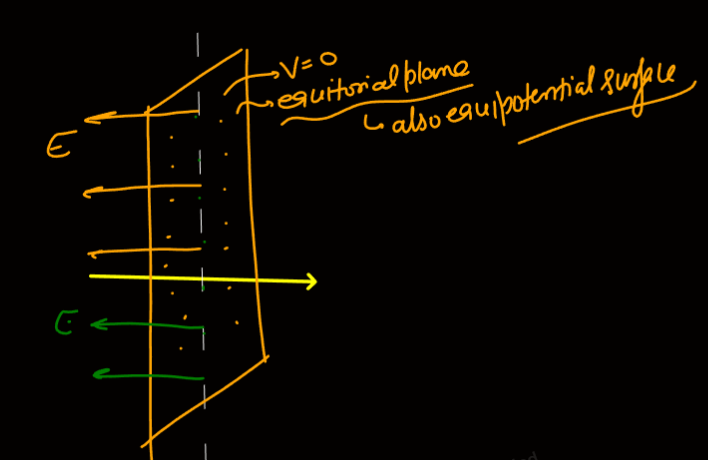 V=0
equitorial plane
also equipotential surface
E
E